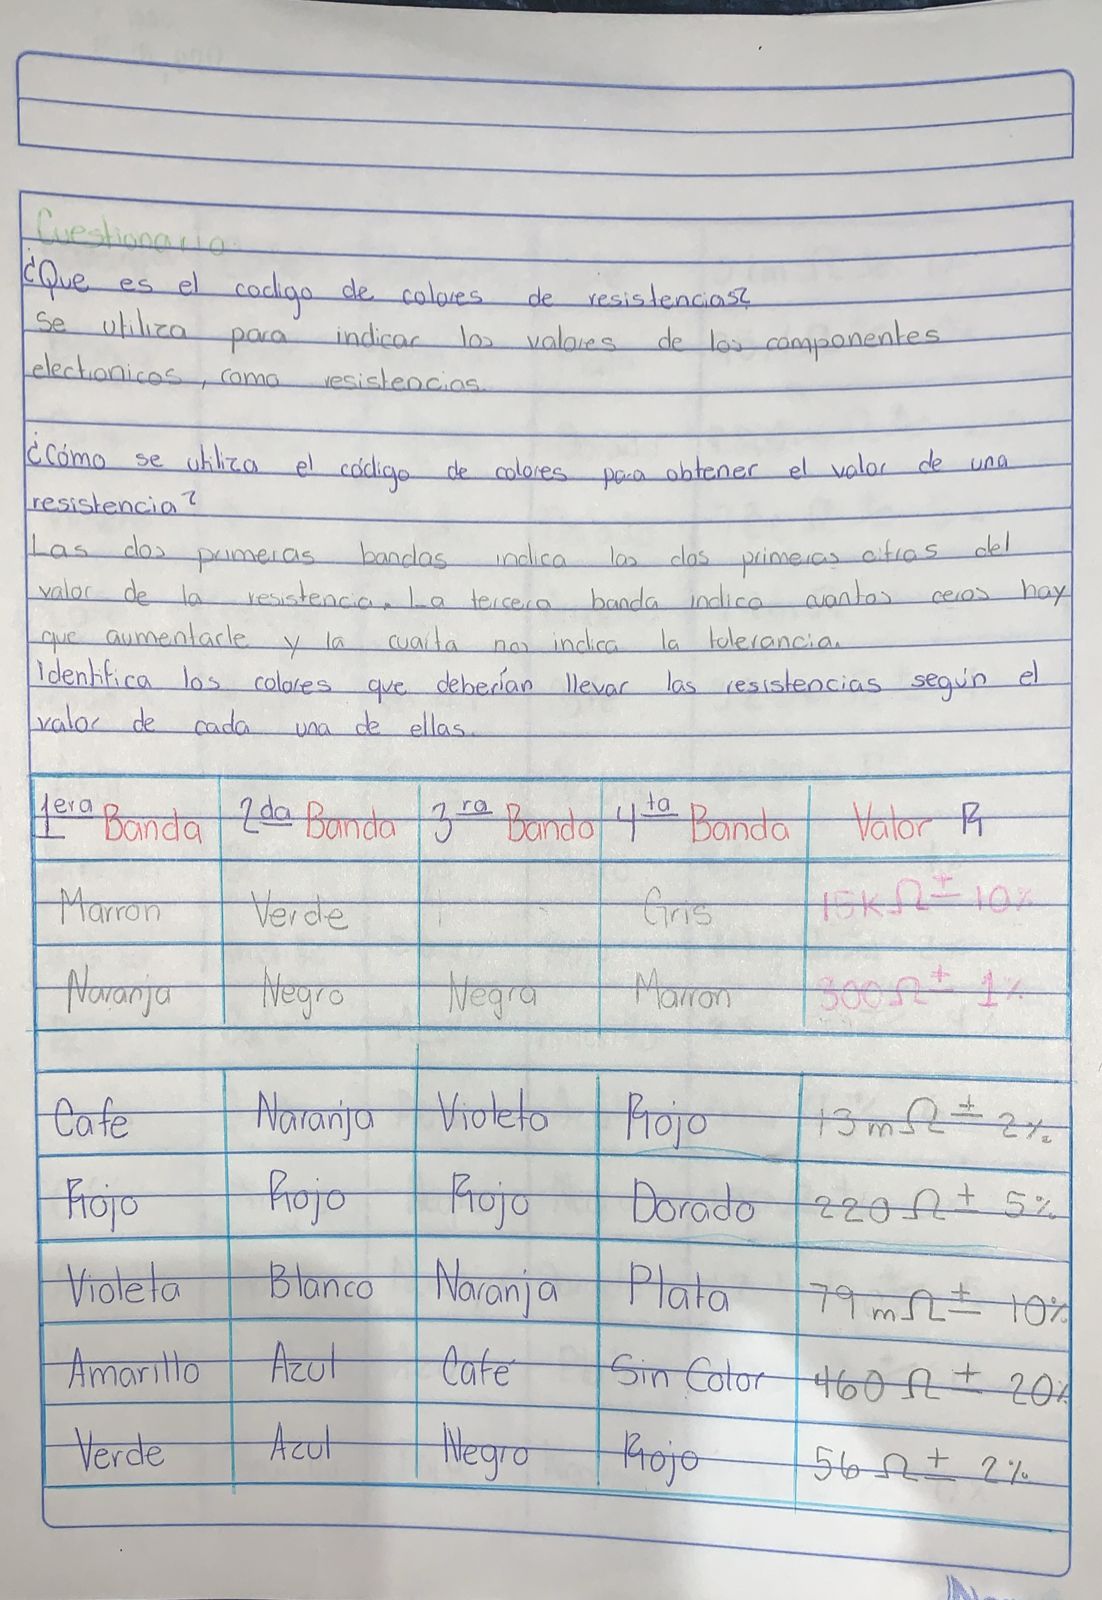 Cuestionario
¿Que es el codigo de colores de resistencias?
Se utiliza para indicar los valores de los componentes
electronicos, como resistencias.
¿Cómo se utiliza el código de colores para obtener el valor de una
resistencia?
Las dos primeras bandas indica las dos primeras cifras del
valor de la resistencia. La tercera banda indica cuantos ceros hay
que aumentarle y la cuarta nos indica la tolerancia.
Identifica los colores que deberían llevar las resistencias según el
valor de cada una de ellas.
1era Banda 2da Banda 3ra Banda 4ta Banda Valor R
Marron Verde Gris 15K Ω ± 10%
Naranja Negro Negro Marron 300 Ω ± 1%
Cafe Naranja Violeta Rojo 13 m Ω ± 2%
Rojo Rojo Rojo Dorado 220 Ω ± 5%
Violeta Blanco Naranja Plata 79 m Ω ± 10%
Amarillo Azul Café Sin Color 460 Ω ± 20%
Verde Azul Negro Rojo 56 Ω ± 2%